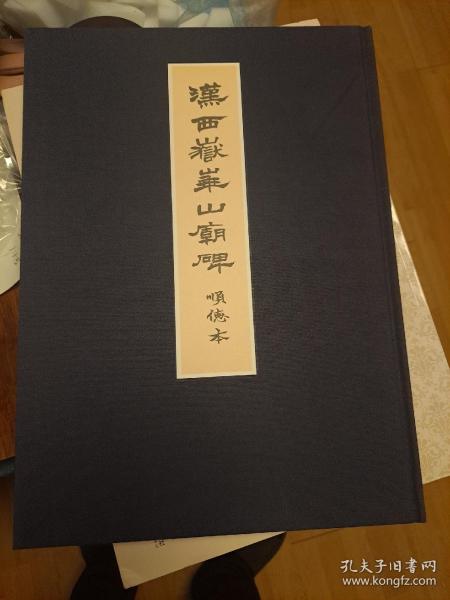 漢西嶽華山廟碑
順德本
孔夫子旧书网
www.kongfz.com